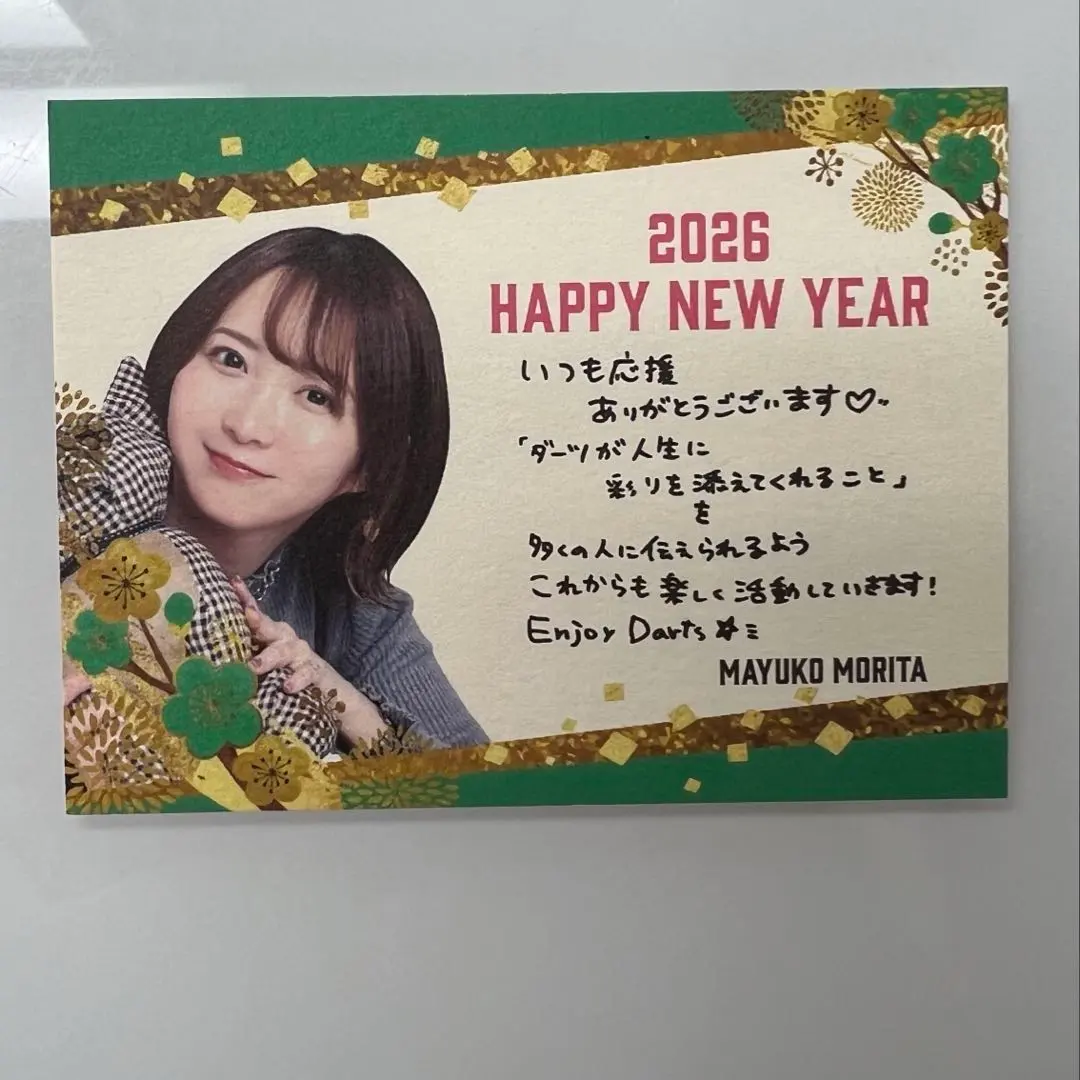 2026
HAPPY NEW YEAR
いつも応援
ありがとうございます♡
「ダーツが人生に
彩りを添えてくれること」
を
多くの人に伝えられるよう
これからも楽しく活動していきます!
Enjoy Darts☆ミ
MAYUKO MORITA